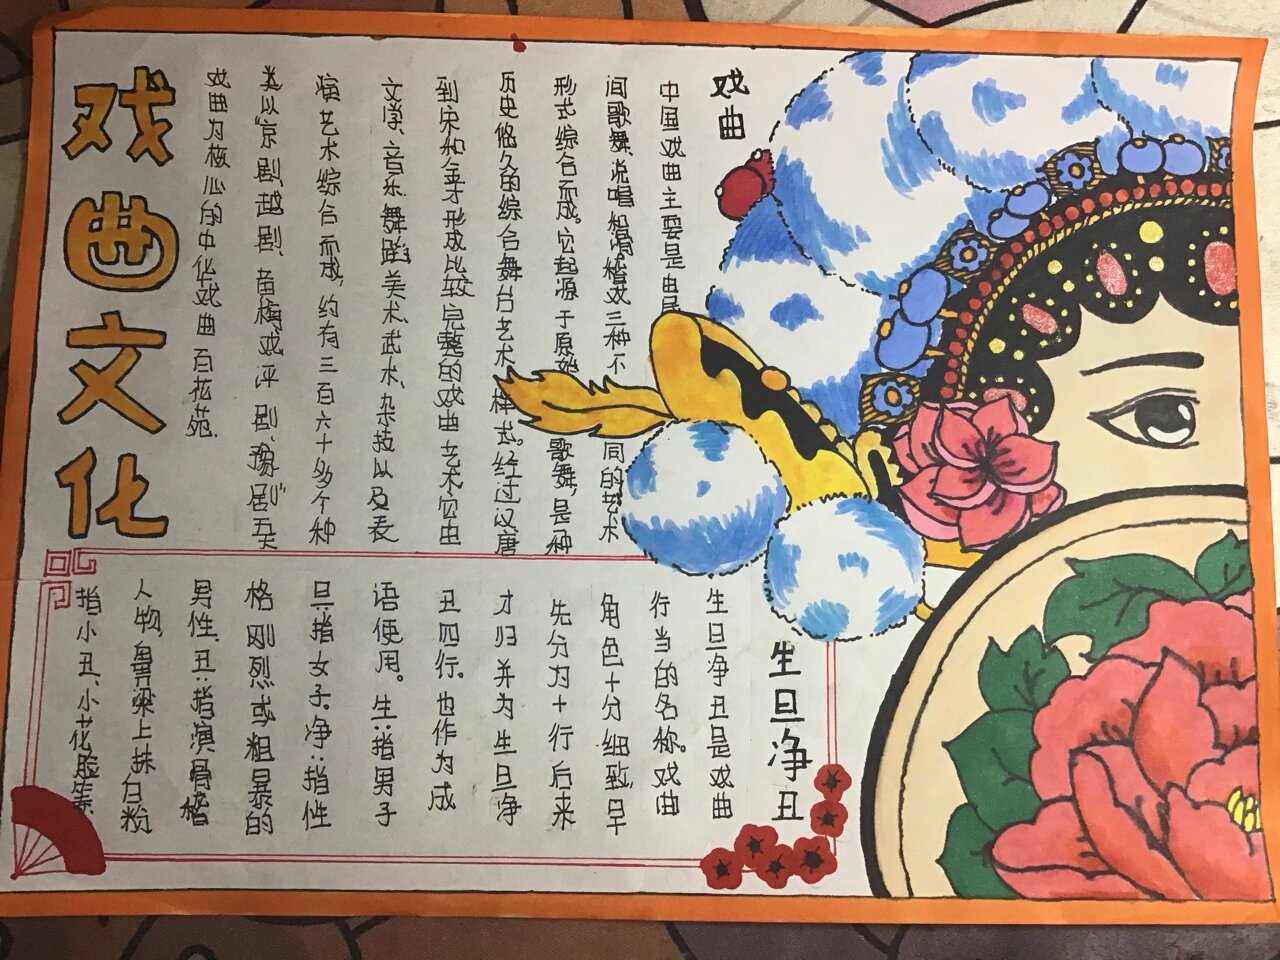 戏曲文化
戏曲
中国戏曲主要是由民
间歌舞、说唱和滑稽戏三种不同的艺术
形式综合而成。它起源于原始歌舞,是种
历史悠久的综合舞台艺术样式。经过汉唐
到宋和金才形成比较完整的戏曲艺术,它由
文学、音乐、舞蹈、美术、武术、杂技以及表
演艺术综合而成,约有三百六十多个种
类以"京剧、越剧、黄梅戏、评剧、豫剧"五大
戏曲为核心的中华戏曲百花苑.
生旦净丑
生旦净丑是戏曲
行当的名称。戏曲
角色十分细致,早
先分为十行后来
才归并为生旦净
丑四行.也作为成
语使用。生:指男子
旦:指女子.净:指性
格刚烈或粗暴的
男性.丑:指演滑稽
人物,鼻梁上抹白粉
指小丑、小花脸等